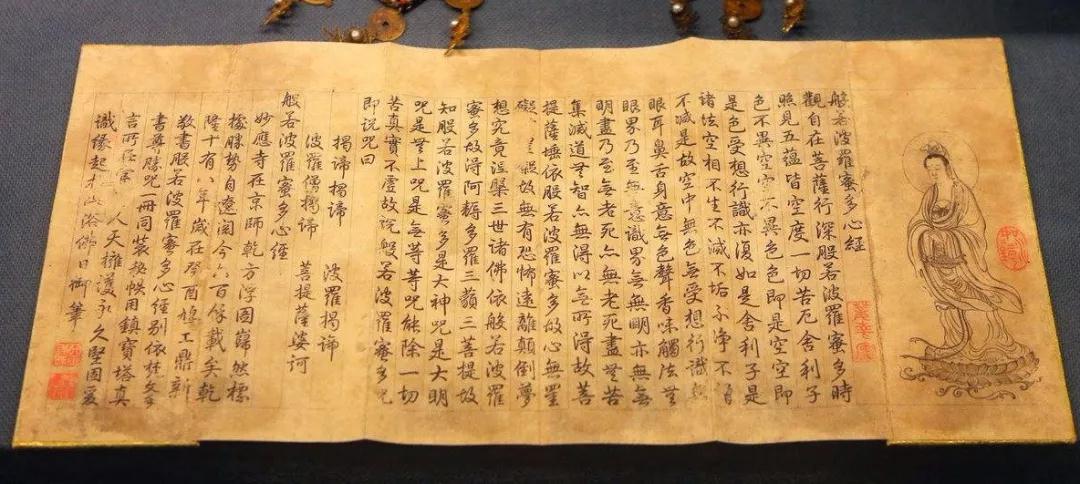 般若波羅蜜多心經
觀自在菩薩行深般若波羅蜜多時
照見五蘊皆空度一切苦厄舍利子
色不異空空不異色色即是空空即
是色受想行識亦復如是舍利子是
諸法空相不生不滅不垢不淨不
不減是故空中無色無受想行識無
眼耳鼻舌身意無色聲香味觸法無
眼界乃至無意識界無無明亦無無
明盡乃至無老死亦無老死盡無苦
集滅道無智亦無得以無所得故菩
提薩埵依般若波羅蜜多故心無罣
礙礙故無有恐怖遠離顛倒夢
想究竟涅槃三世諸佛依般若波羅
蜜多故得阿耨多羅三藐三菩提故
知般若波羅蜜多是大神咒是大明
咒是無上咒是無等等咒能除一切
苦真實不虛故說般若波羅蜜多咒
即說咒曰
揭諦揭諦 波羅揭諦
波羅僧揭諦 菩提薩婆訶
般若波羅蜜多心經
妙應寺在京師乾方浮圖巋然標
據勝勢自遼閱今六百餘載矣乾
隆十有八年歲在癸酉鳩工鼎新
敬書般若波羅蜜多心經別依梵
書尊勝咒冊同裝帙用鎮寶塔真
言所人天擁護永久堅固爰
識緣起浴佛日御筆